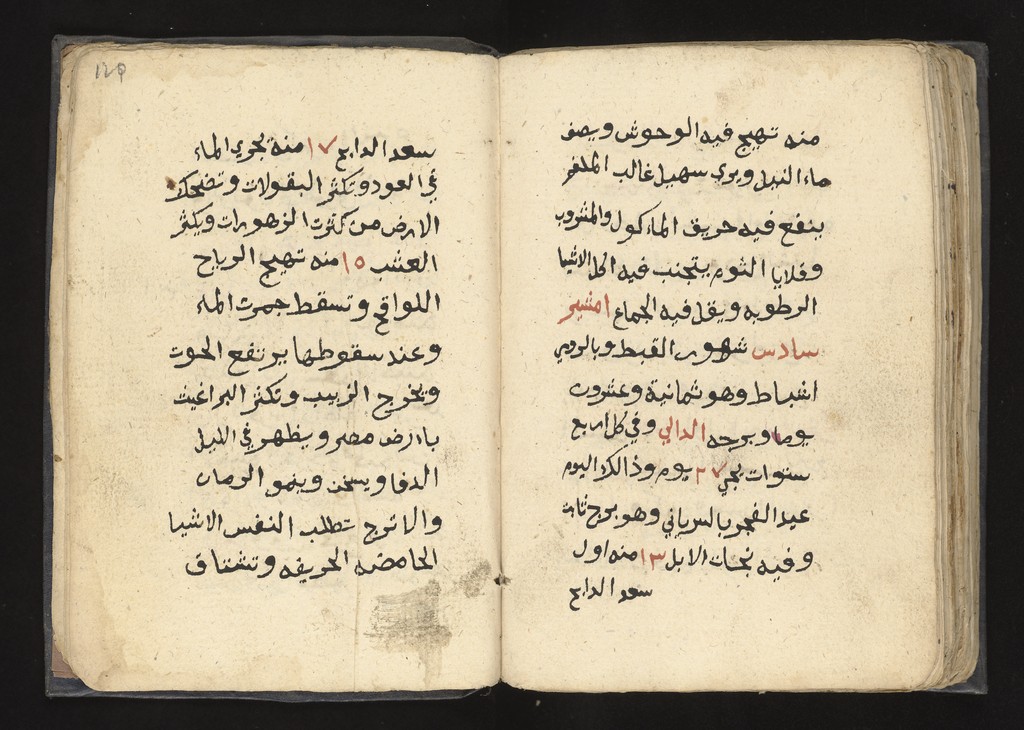 منه تهيج فيه الوحوش ويصف
ماء النيل ويري سهيل غالب
ينفع فيه حريق الماكول والمشروب
وقلايا الثوم يتجنب فيه اكل الاشيا
الرطوبه ويقل فيه الجماع امشير
سادس شهور القبط وبالرومي
اشباط وهو ثمانية وعشرون
يوما وبرجه الدالي وفي كل اربع
سنوات يجي ٢٧ يوم وذالك اليوم
عيد الفجر بالسرياني وهو برج ثابت
وفيه نجات الابل ١٣ منه اول
سعد الدابح
١٢٩
سعد الدابح ١٧ منه يجري الماء
في العود وتكثر البقولات وتضحك
الارض من كثرت الزهورات ويكثر
العشب ١٥ منه تهيج الرياح
اللواقح وتسقط جمرت الماء
وعند سقوطها يرتفع الحوت
ويخرج الزبيب وتكثر البراغيث
باارض مصر ويظهر في الليل
الدفا ويسخن وينمو الرمان
والاترج تطلب النفس الاشيا
الحامضه الحريفه وتشتاق